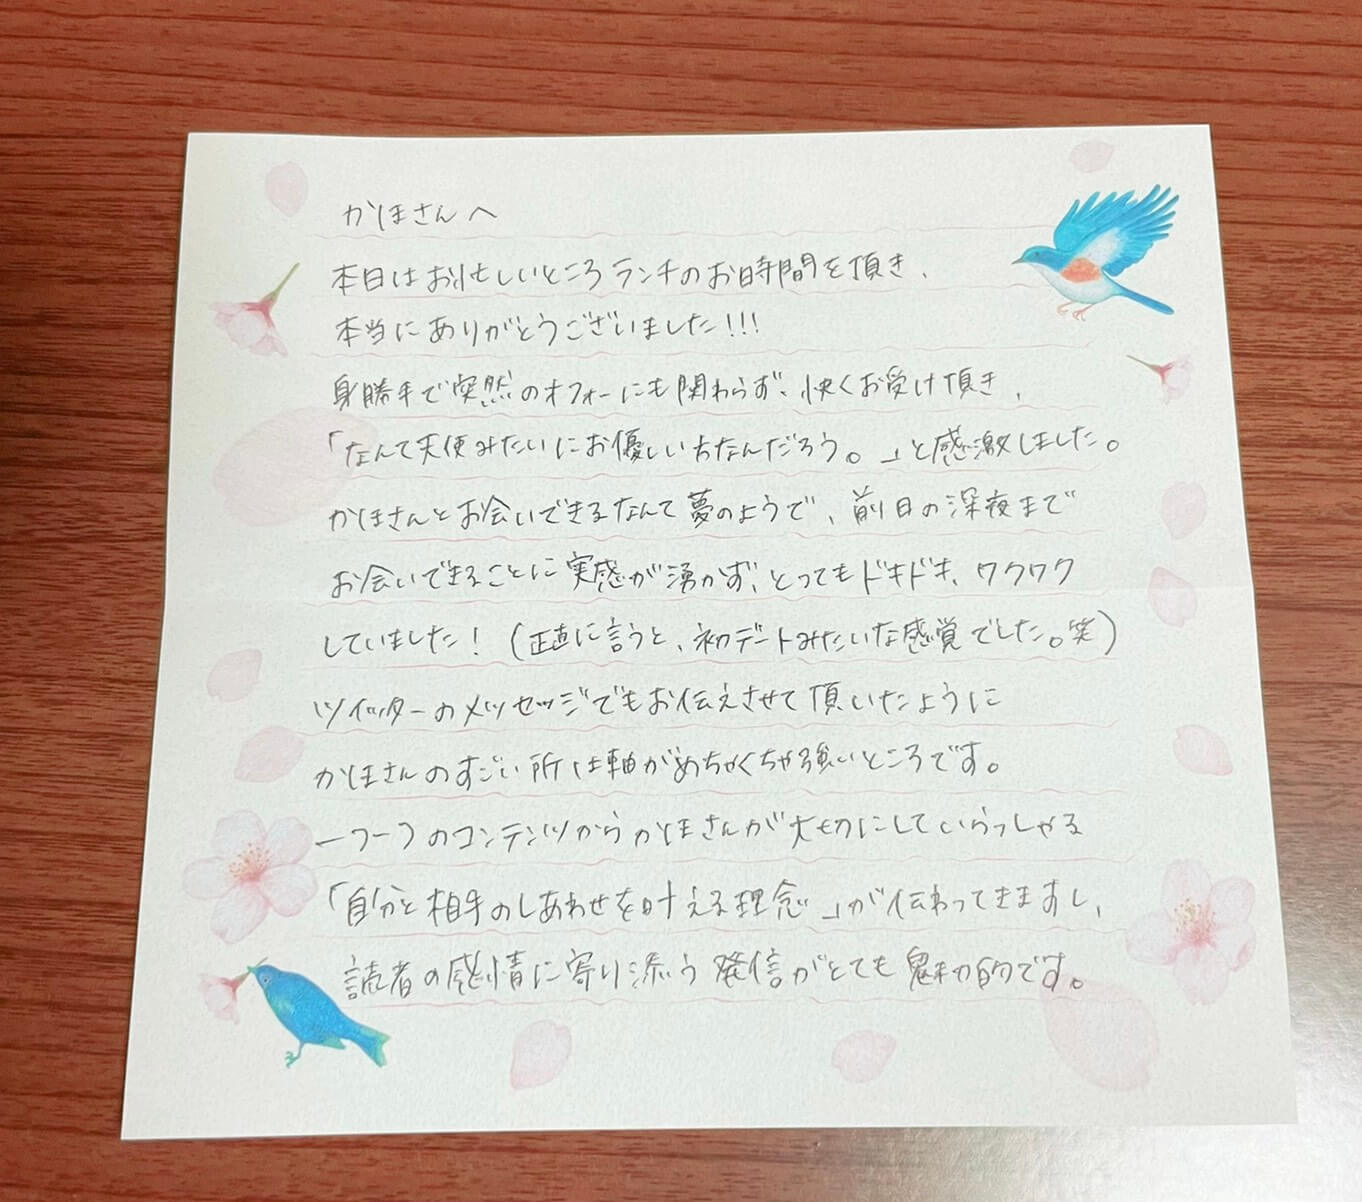 かほさんへ
本日はお忙しいところランチのお時間を頂き、
本当にありがとうございました!!!
身勝手で突然のオファーにも関わらず、快くお受け頂き、
「なんて天使みたいにお優しい方なんだろう。」と感激しました。
かほさんとお会いできるなんて夢のようで、前日の深夜まで
お会いできることに実感が湧かず、とってもドキドキ、ワクワク
していました!(正直に言うと、初デートみたいな感覚でした。笑)
ツイッターのメッセージでもお伝えさせて頂いたように
かほさんのすごい所は軸がめちゃくちゃ強いところです。
一つ一つのコンテンツからかほさんが大切にしていらっしゃる
「自分と相手のしあわせを叶える理念」が伝わってきますし、
読者の感情に寄り添う発信がとても魅力的です。